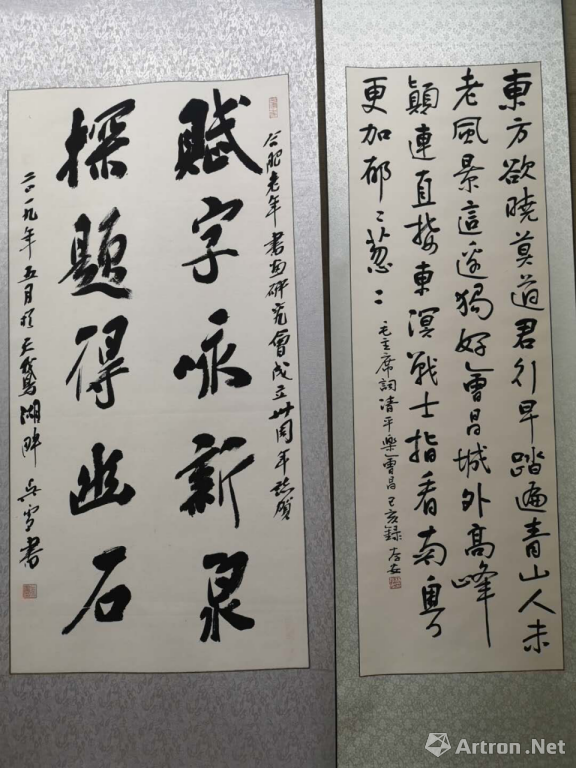 東方欲曉莫道君行早踏遍青山人未
老風景這邊獨好會昌城外高峰
顛連直接東溟戰士指看南粵
更加郁〻葱〻
毛主席詞清平樂會昌己亥錄
合肥老年書畫研究會成立卅周年誌賀
賦字詠新泉
探題得幽石
二〇一九年五月於天鵝湖畔
書
Artron.Net